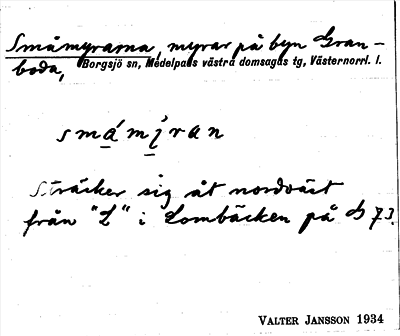 Småmyrarna, myrar på byn Gran-
boda,
Borgsjö sn, Medelpads västra domsagas tg, Västernorrl. l.
smá̲mi̲ran
Sträcker sig åt nordväst
från "L" i Lombäcken på G 73.
VALTER JANSSON 1934